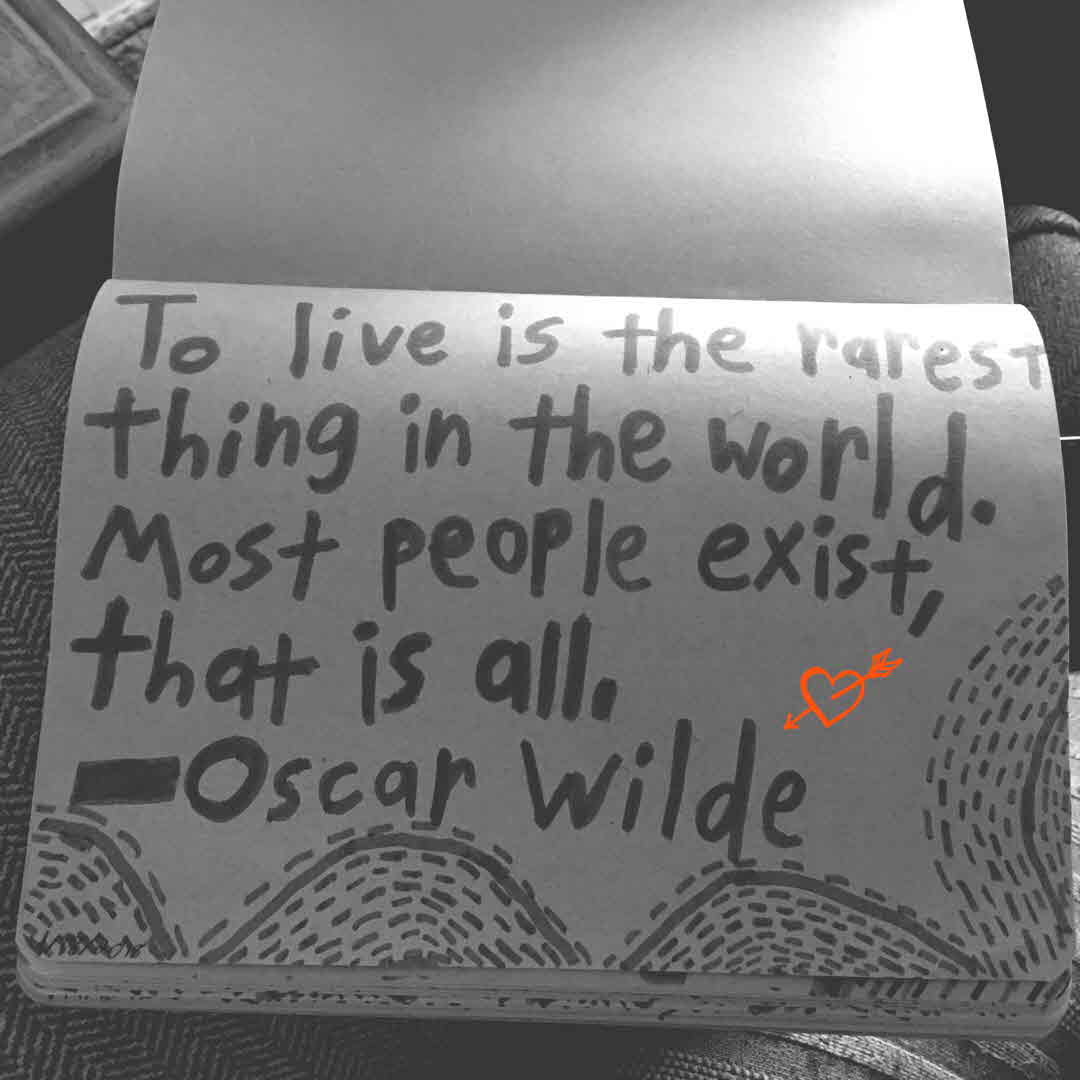 To live is the rarest
thing in the world.
Most people exist,
that is all.
—Oscar Wilde